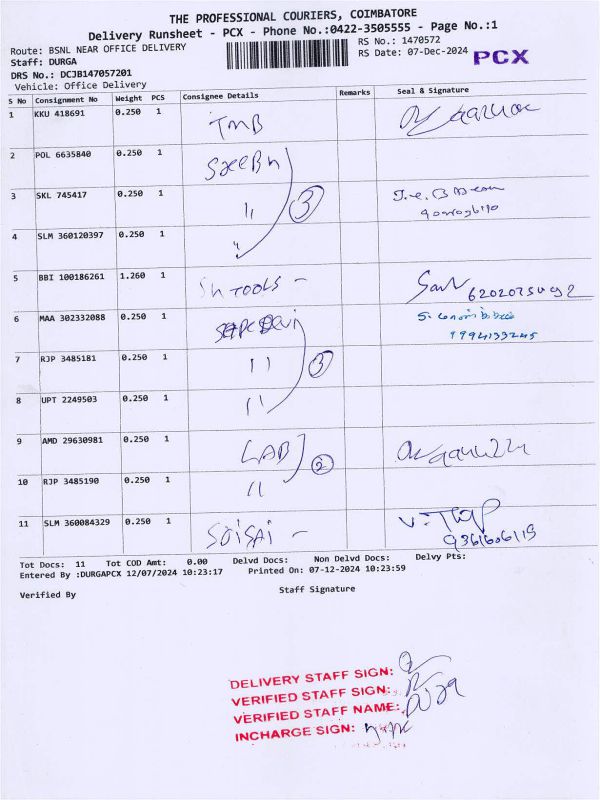 THE PROFESSIONAL COURIERS, COIMBATORE
Delivery Runsheet - PCX - Phone No.:0422-3505555 - Page No.:1
Route: BSNL NEAR OFFICE DELIVERY
RS No.: 1470572
Staff: DURGA
RS Date: 07-Dec-2024
PCX
DRS No.: DCJB147057201
Vehicle: Office Delivery
S No Consignment No Weight PCS Consignee Details Remarks Seal & Signature
1 KKU 418691 0.250 1 TMB
2 POL 6635840 0.250 1
3 SKL 745417 0.250 1 " 3
4 SLM 360120397 0.250 1 "
5 BBI 100186261 1.260 1 TOOLS -
6 MAA 302332088 0.250 1
7 RJP 3485181 0.250 1 " 3
8 UPT 2249503 0.250 1 "
9 AMD 29630981 0.250 1 LAB
10 RJP 3485190 0.250 1 " 2
11 SLM 360084329 0.250 1 -
9361606119
Tot Docs: 11 Tot COD Amt: 0.00 Delvd Docs: Non Delvd Docs: Delvy Pts:
Entered By :DURGAPCX 12/07/2024 10:23:17 Printed On: 07-12-2024 10:23:59
Verified By Staff Signature
DELIVERY STAFF SIGN:
VERIFIED STAFF SIGN:
VERIFIED STAFF NAME:
INCHARGE SIGN: